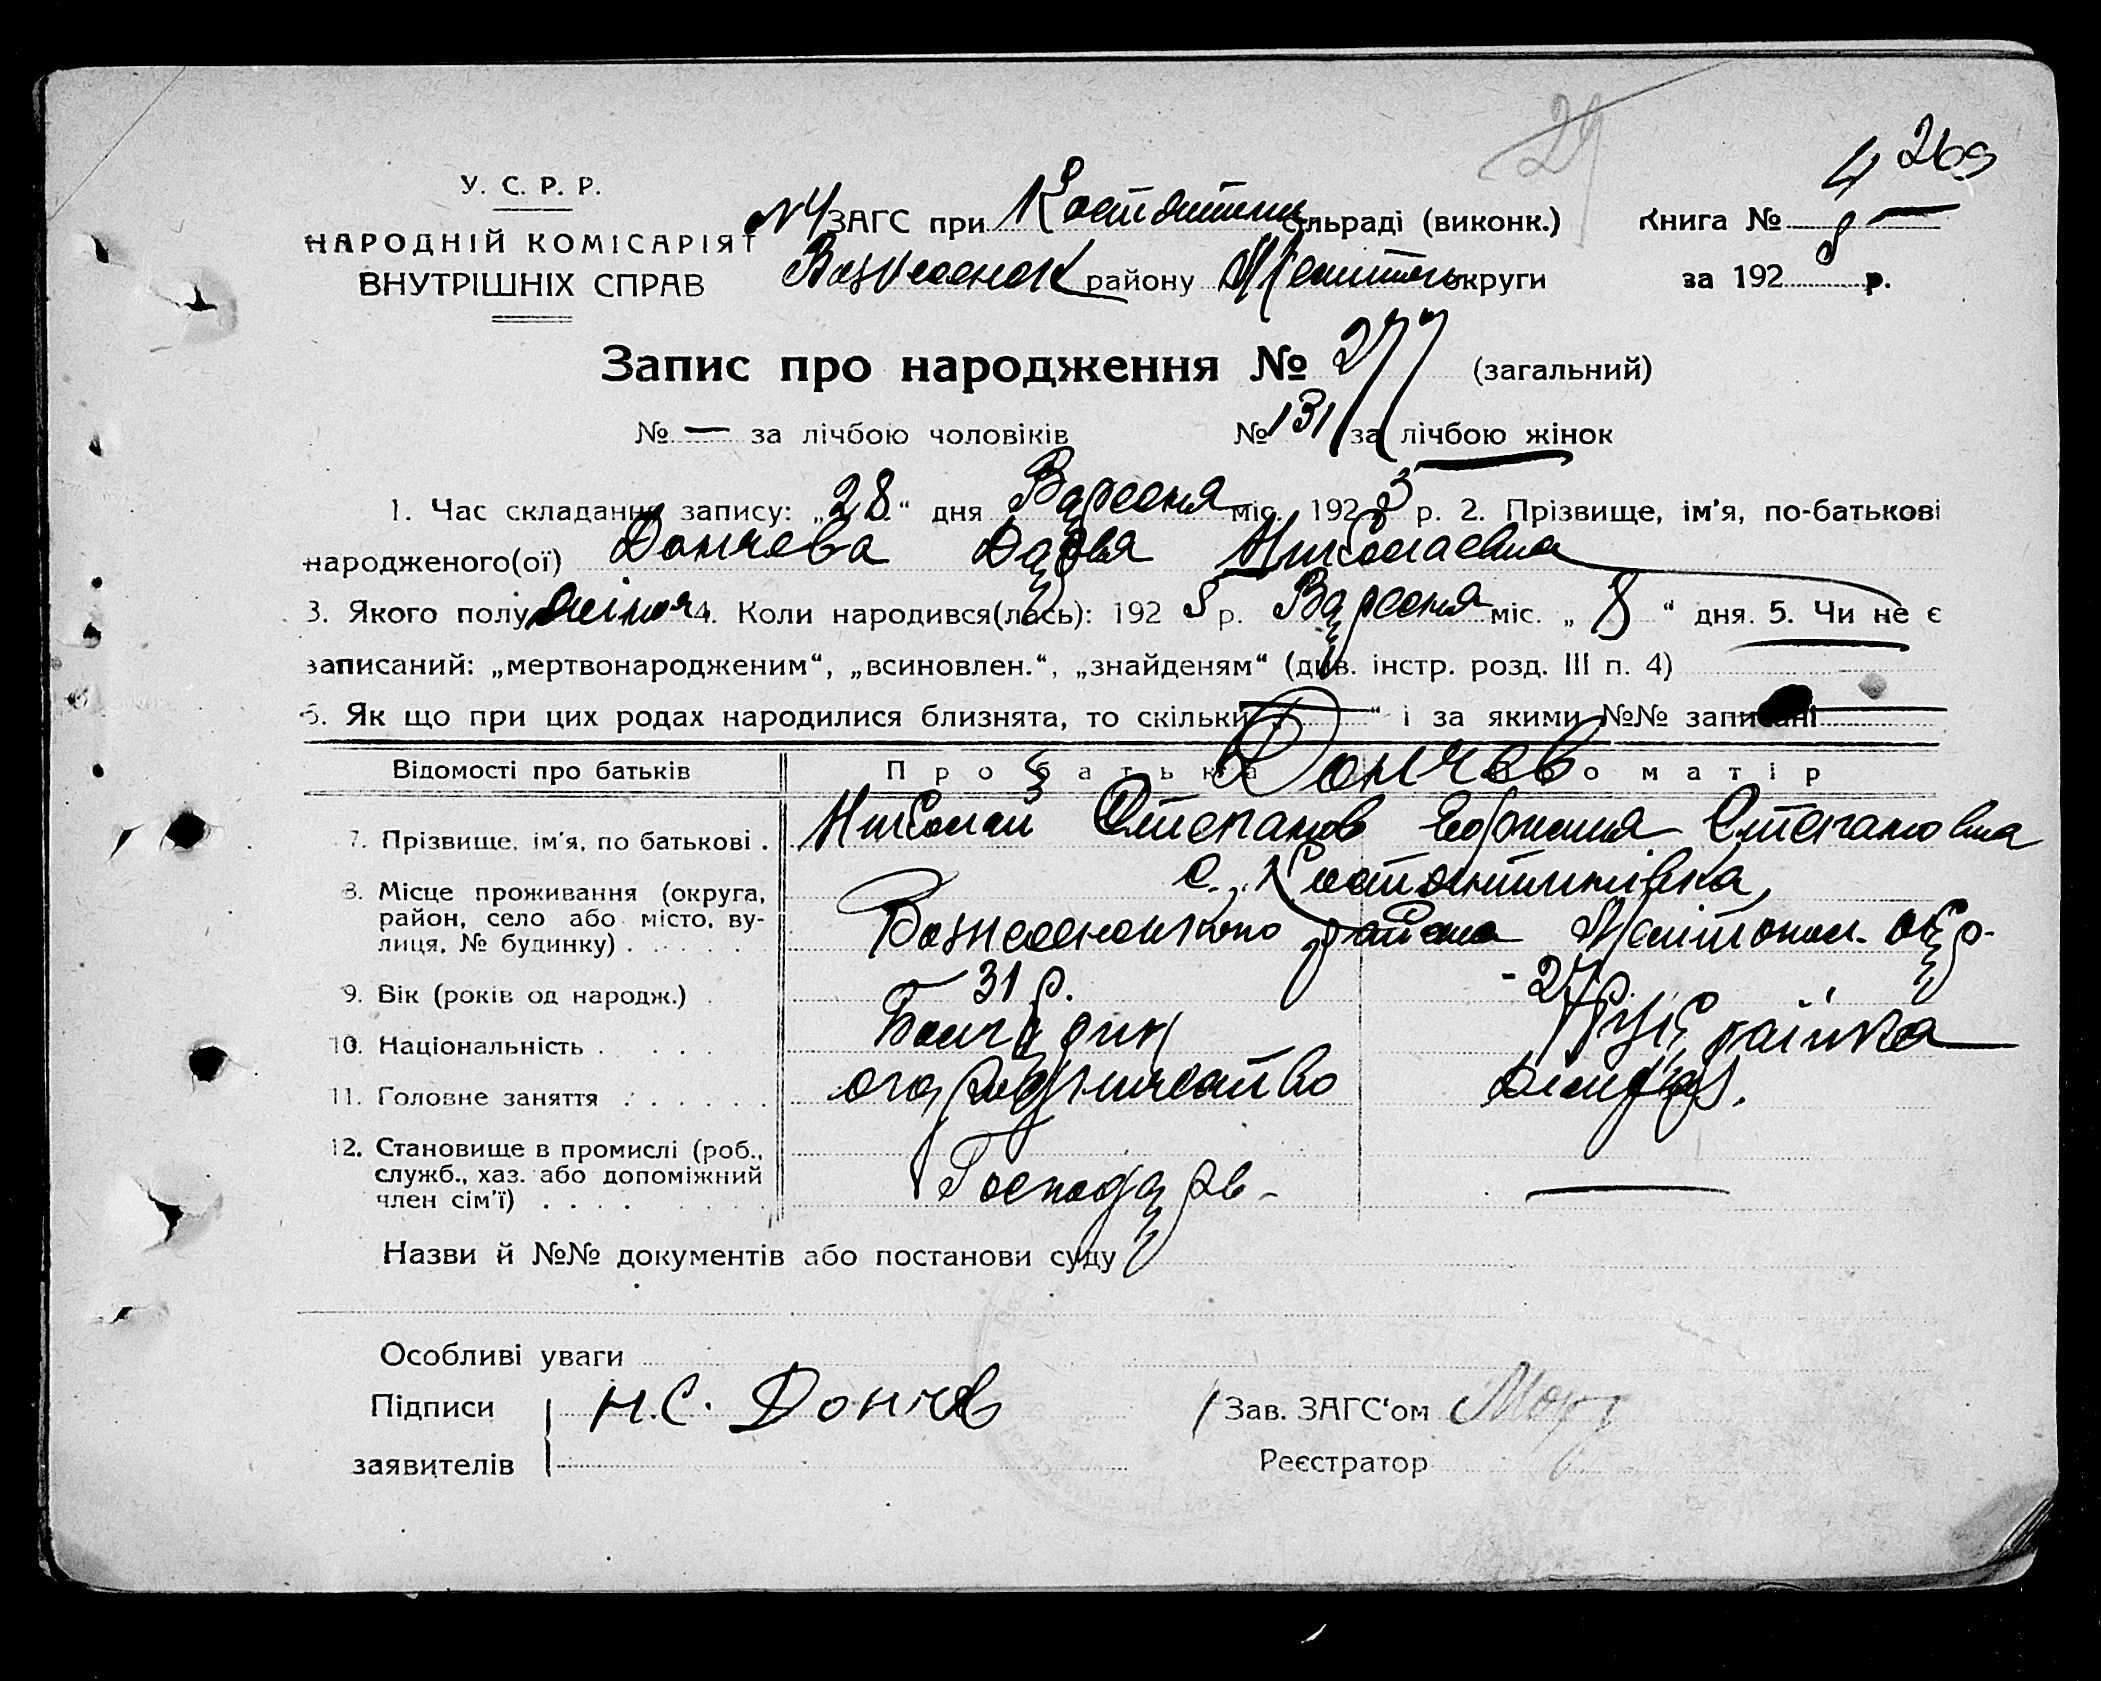 29
У. С. Р. Р.
НАРОДНІЙ КОМІСАРІЯТ
ВНУТРІШНІХ СПРАВ
№ 4 ЗАГС при Костянтин. сільраді (виконк.)
Вознесенск району округи
4 269
Книга №
за 192 8 р.
Запис про народження № 277 (загальний)
№ — за лічбою чоловіків № 131 за лічбою жінок
1. Час складання запису: „28“ дня Вересня міс. 192 р. 2. Прізвище, ім'я, по-батькові
народженого(ої) Дончева Дарья Николаевна
3. Якого полу жіноч 4. Коли народився(лась): 192 8 р. Вересня міс. „ 8 “ дня. 5. Чи не є
записаний: „мертвонародженим“, „всиновлен.“, „знайденям“ (див. інстр. розд. III п. 4)
6. Як що при цих родах народилися близнята, то скільки „ — “ і за якими №№ записані —
Відомості про батьків Про батька Про матір
Дончев
7. Прізвище, ім'я, по батькові . Николай Степанов Степановна
8. Місце проживання (округа,
район, село або місто, ву-
лиця, № будинку) .
с. Костянтинівка,
Вознесенського району окр.
9. Вік (років од народж.) . 31 р. - 27 р.
10. Національність . Болгарин Українка
11. Головне заняття . огородничество
12. Становище в промислі (роб.,
служб., хаз. або допоміжний
член сім'ї) . . . . Господарь - —
Назви й №№ документів або постанови суду
Особливі уваги
Підписи Н. С. Дончев Зав. ЗАГС'ом
заявителів Реєстратор